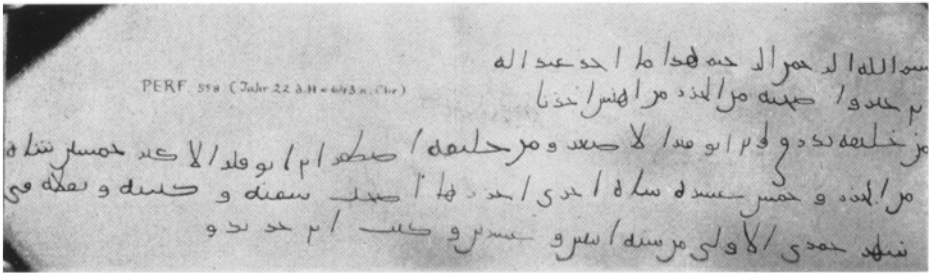 بسم الله الرحمن الرحيم هذا ما اخذ عبد اله
PERF. 558 (Jahr 22 d.H = 643 n. Chr)
بن جبر واصحبه من الجزر من اهنس اخذنا
من خليفة تدرق ابن ابو قير الاصغر ومن خليفة اصطفر ابن ابو قير الاكبر خمسين شاة
من الجزر وخمس عشرة شاة اخرى اجزرها اصحب سفنه وكتئبه وثقلاه في
شهر جمدى الاولى من سنة اثنين وعشرين وكتب ابن حديدو